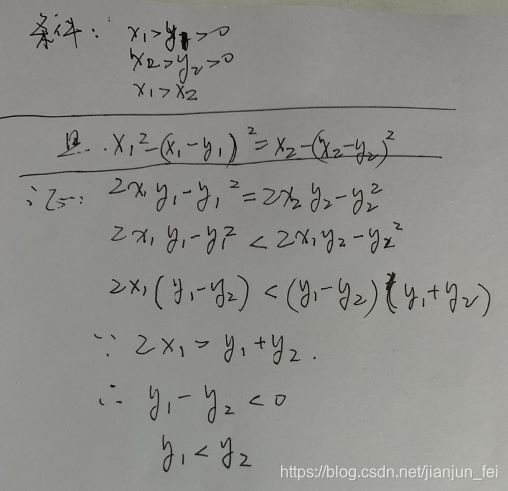 条件: x₁>y₁>0
x₂>y₂>0
x₁>x₂
且. x₁²-(x₁-y₁)²=x₂-(x₂-y₂)²
证: 2x₁y₁-y₁²=2x₂y₂-y₂²
2x₁y₁-y₁²<2x₁y₂-y₂²
2x₁(y₁-y₂)<(y₁-y₂)(y₁+y₂)
∵ 2x₁>y₁+y₂.
∴ y₁-y₂<0
y₁<y₂
https://blog.csdn.net/jianjun_fei